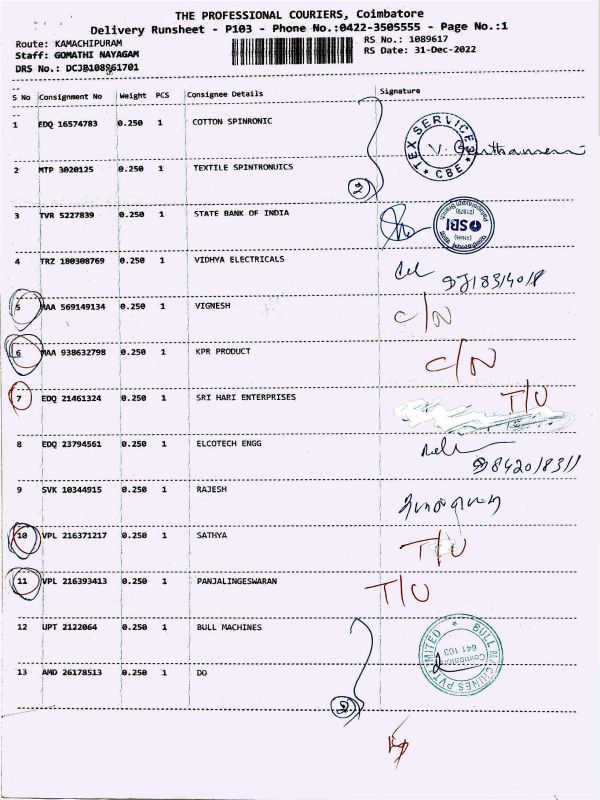 THE PROFESSIONAL COURIERS, Coimbatore
Delivery Runsheet - P103 - Phone No.:0422-3505555 - Page No.:1
Route: KAMACHIPURAM
RS No.: 1089617
Staff: GOMATHI NAYAGAM
RS Date: 31-Dec-2022
DRS No.:
S No Consignment No Weight PCS Consignee Details Signature
1 EDQ 16574783 0.250 1 COTTON SPINRONIC
TEX SERVICE
CBE
2 MTP 3020125 0.250 1 TEXTILE SPINTRONUICS
2
3 TVR 5227839 0.250 1 STATE BANK OF INDIA
SBI
4 TRZ 180308769 0.250 1 VIDHYA ELECTRICALS
5 MAA 569149134 0.250 1 VIGNESH C/N
6 MAA 938632798 0.250 1 KPR PRODUCT C/N
7 EDQ 21461324 0.250 1 SRI HARI ENTERPRISES T/U
8 EDQ 23794561 0.250 1 ELCOTECH ENGG
9 SVK 10344915 0.250 1 RAJESH
10 VPL 216371217 0.250 1 SATHYA T/U
11 VPL 216393413 0.250 1 PANJALINGESWARAN T/U
12 UPT 2122064 0.250 1 BULL MACHINES
BULL MACHINES PVT LIMITED
Coimbatore
641 103
13 AMD 26178513 0.250 1 DO
2